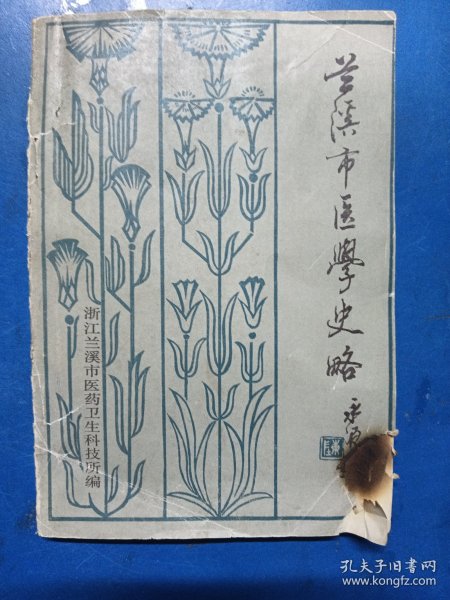 兰溪市医學史略
浙江兰溪市医药卫生科技所编
孔夫子旧书网
www.kongfz.com